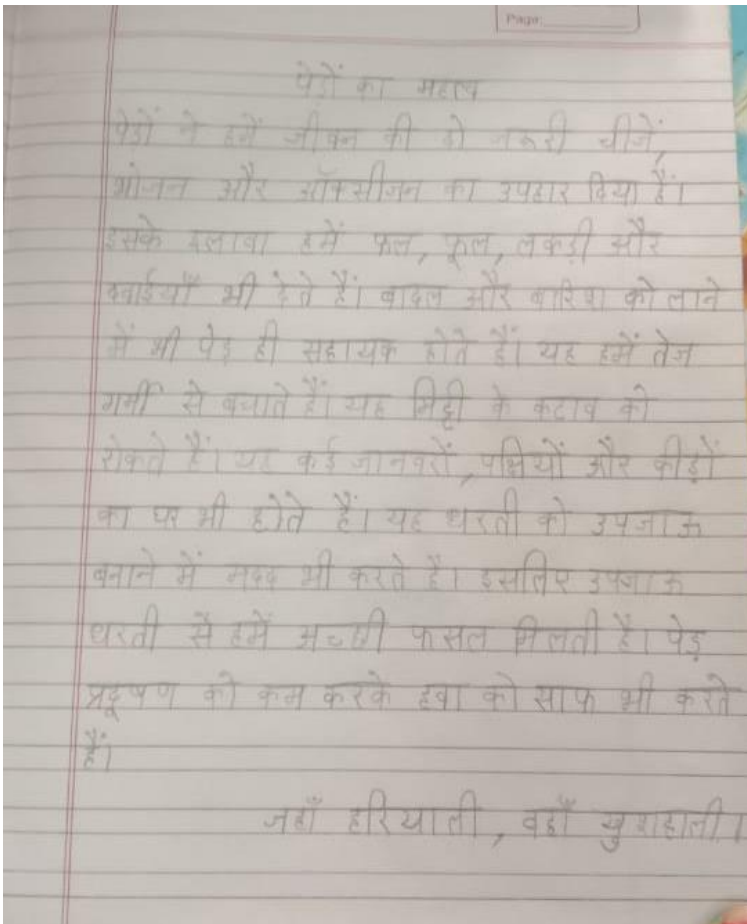 Page:
पेड़ों का महत्व
पेड़ों ने हमें जीवन की दो जरूरी चीजें,
भोजन और ऑक्सीजन का उपहार दिया हैं।
इसके इलावा हमें फल, फूल, लकड़ी और
दवाईयाँ भी देते हैं। बादल और बारिश को लाने
में भी पेड़ ही सहायक होते हैं। यह हमें तेज
गर्मी से बचाते हैं। यह मिट्टी के कटाव को
रोकते हैं। यह कई जानवरों, पक्षियों और कीड़ों
का घर भी होते हैं। यह धरती को उपजाऊ
बनाने में मदद भी करते है। इसलिए उपजाऊ
धरती से हमें अच्छी फसल मिलती है। पेड़
प्रदूषण को कम करके हवा को साफ भी करते
हैं।
जहाँ हरियाली, वहाँ खुशहाली।